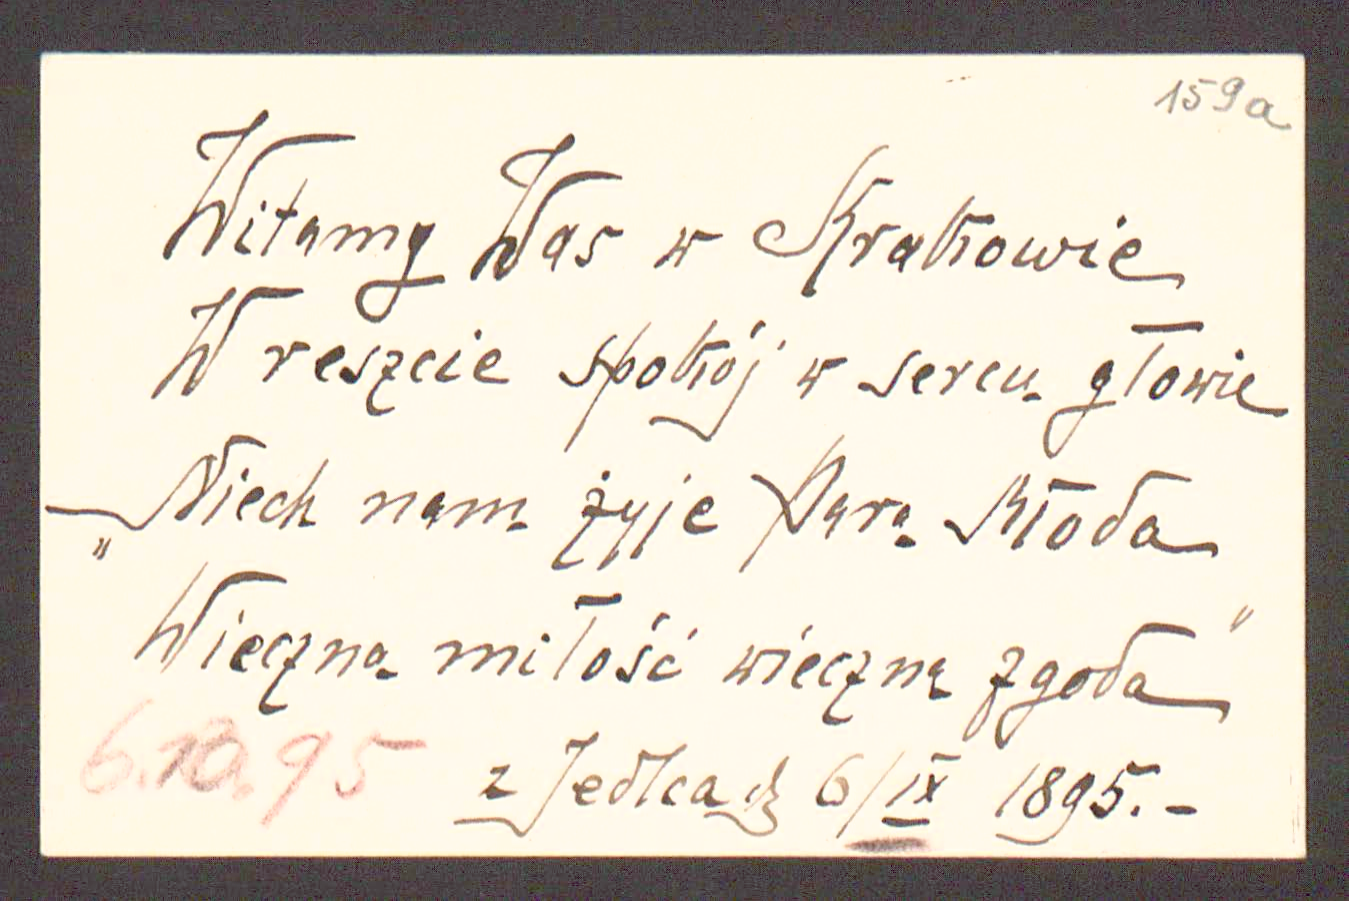 159a
Witamy Was w Krakowie
W reszcie spokój w sercu głowie
„Niech nam żyje Para Młoda
Wieczna miłość wieczna zgoda"
6.10.95
z Jedlca d. 6/IX 1895.-